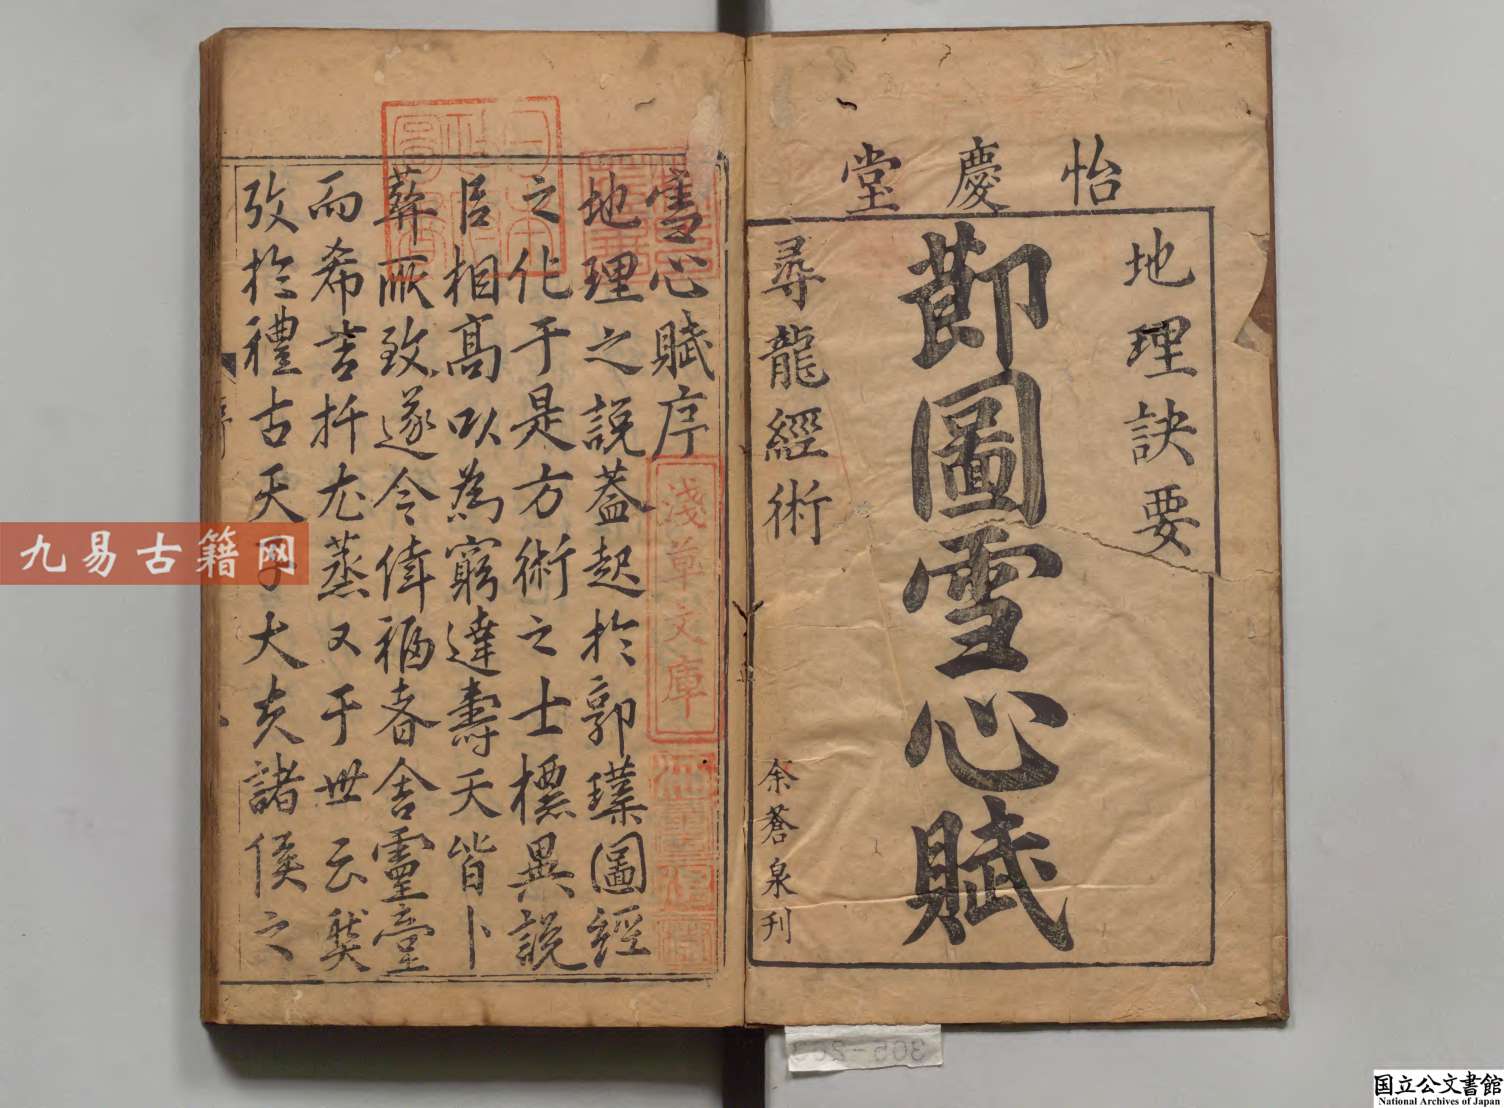 怡慶堂
地理訣要
節圖雪心賦
尋龍經術
余蒼泉刊
雪心賦序
地理之說蓋起於郭璞圖經
之化于是方術之士標異說
目相高以為窮達壽夭皆卜
葬所致遂令倖福者舍靈臺
而希吉扦尤蒸又于世云契
攷於禮古天子大夫諸侯之
淺草文庫
九易古籍网
305-263
国立公文書館
National Archives of Japan